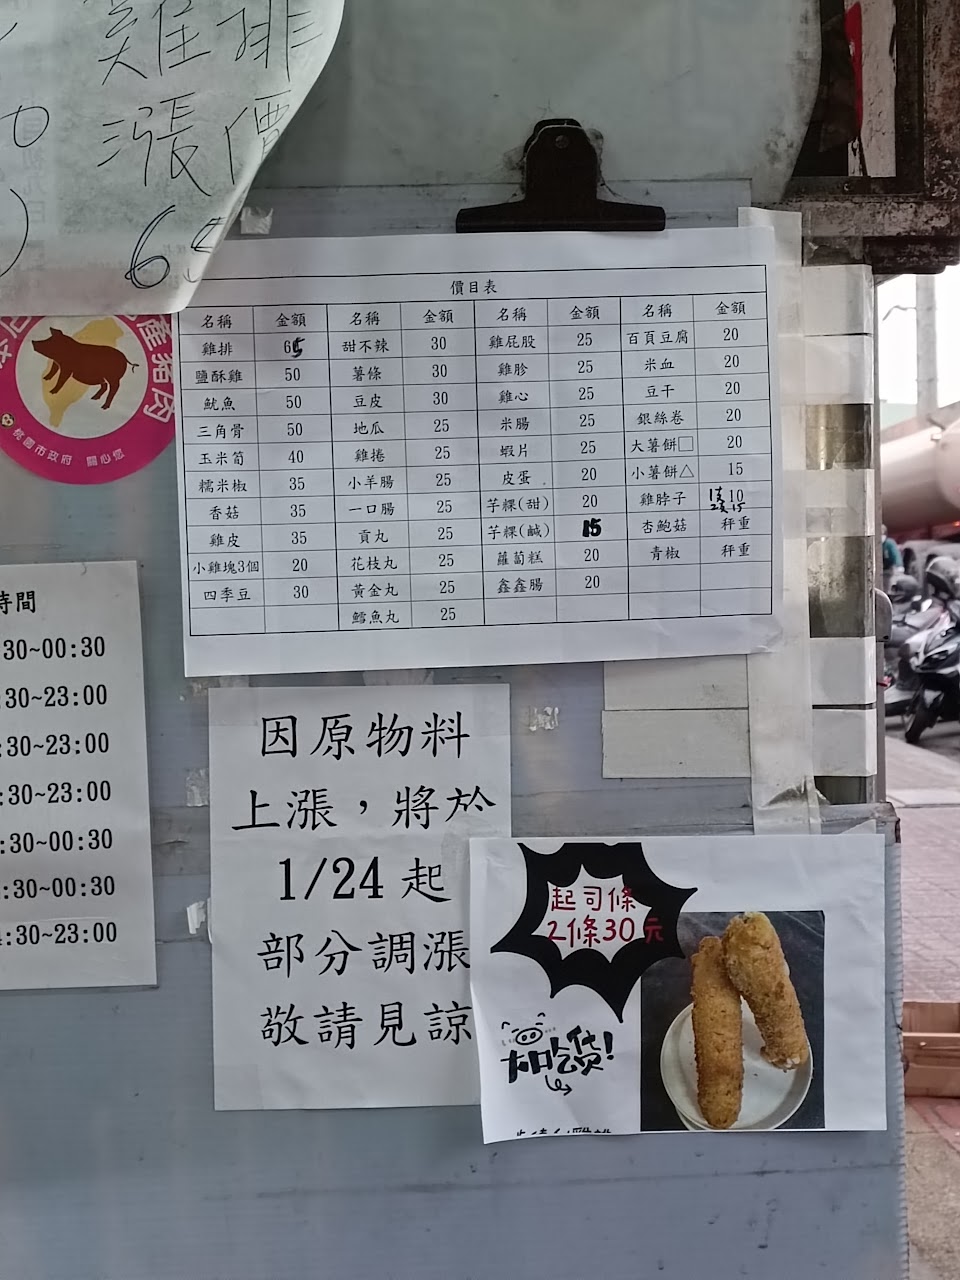 雞排
漲價
65
產豬肉
桃園市政府 關心您
價目表
名稱 金額 名稱 金額 名稱 金額 名稱 金額
雞排 65 甜不辣 30 雞屁股 25 百頁豆腐 20
鹽酥雞 50 薯條 30 雞胗 25 米血 20
魷魚 50 豆皮 30 雞心 25 豆干 20
三角骨 50 地瓜 25 米腸 25 銀絲卷 20
玉米筍 40 雞捲 25 蝦片 25 大薯餅□ 20
糯米椒 35 小羊腸 25 皮蛋 20 小薯餅△ 15
香菇 35 一口腸 25 芋粿(甜) 20 雞脖子 1支10 2支15
雞皮 35 貢丸 25 芋粿(鹹) 15 杏鮑菇 秤重
小雞塊3個 20 花枝丸 25 蘿蔔糕 20 青椒 秤重
四季豆 30 黃金丸 25 鑫鑫腸 20
鱈魚丸 25
時間
:30~00:30
:30~23:00
:30~23:00
:30~23:00
:30~00:30
:30~00:30
4:30~23:00
因原物料
上漲，將於
1/24 起
部分調漲
敬請見諒
起司條
2條30元
大口吃貨!